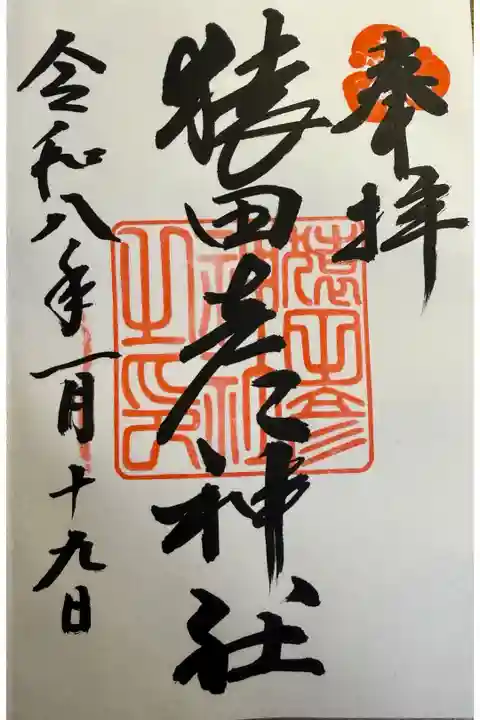 奉拝
猿田彦神社
猿田彦
神社
之印
令和八年一月十九日